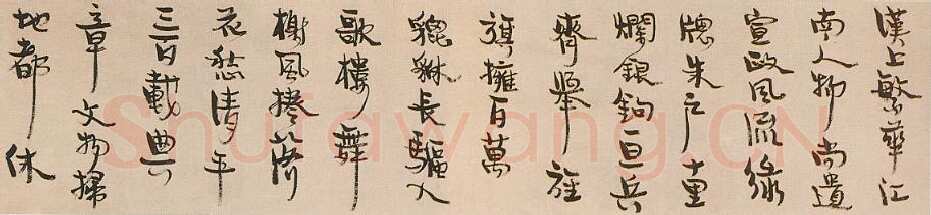 漢上繁華江
南人物尚遺
宣政風流綠
牕朱户十里
爛銀鉤一旦兵
齊舉旌
旗擁百萬
貔貅長驅入
歌樓舞
榭風捲落
花愁清平
三百載典
章文物掃
地都休
Shufawang.CN